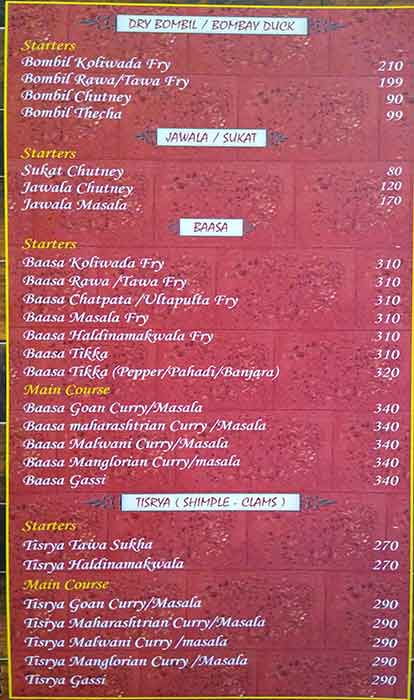 DRY BOMBIL / BOMBAY DUCK
Starters
Bombil Koliwada Fry 210
Bombil Rawa/Tawa Fry 199
Bombil Chutney 90
Bombil Thecha 99
JAWALA / SUKAT
Starters
Sukat Chutney 80
Jawala Chutney 120
Jawala Masala 170
BAASA
Starters
Baasa Koliwada Fry 310
Baasa Rawa /Tawa Fry 310
Baasa Chatpata /Ultapulta Fry 310
Baasa Masala Fry 310
Baasa Haldinamakwala Fry 310
Baasa Tikka 310
Baasa Tikka (Pepper/Pahadi/Banjara) 320
Main Course
Baasa Goan Curry/Masala 340
Baasa maharashtrian Curry /Masala 340
Baasa Malwani Curry/Masala 340
Baasa Manglorian Curry/masala 340
Baasa Gassi 340
TISRYA ( SHIMPLE - CLAMS )
Starters
Tisrya Tawa Sukha 270
Tisrya Haldinamakwala 270
Main Course
Tisrya Goan Curry/Masala 290
Tisrya Maharashtrian Curry/Masala 290
Tisrya Malwani Curry /masala 290
Tisrya Manglorian Curry /Masala 290
Tisrya Gassi 290